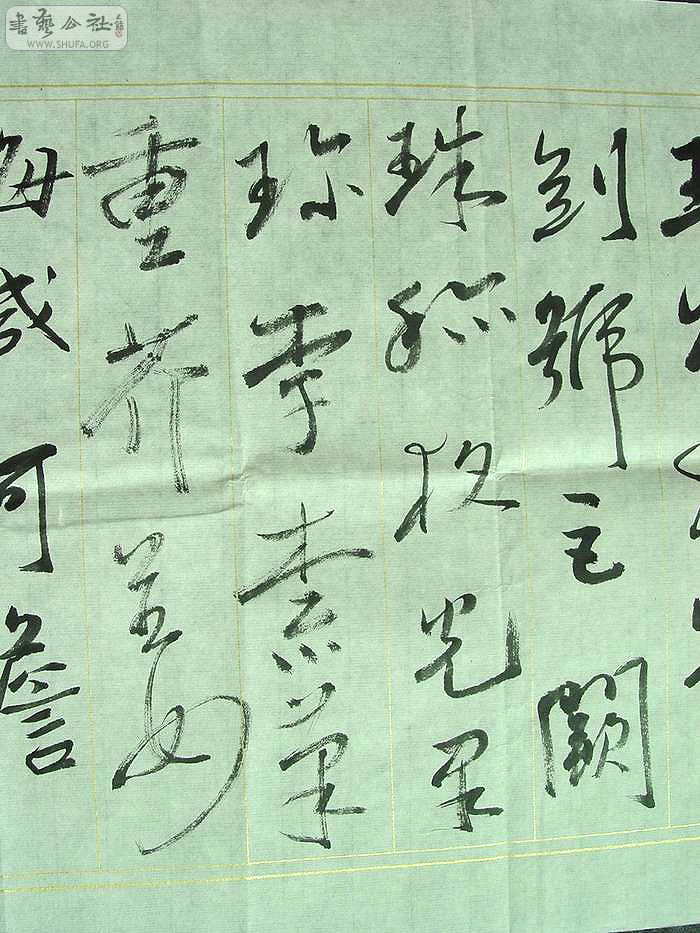 書藝公社
WWW.SHUFA.ORG
玉出
劍號巨闕
珠称夜光果
珍李柰菜
重芥姜
海咸河澹